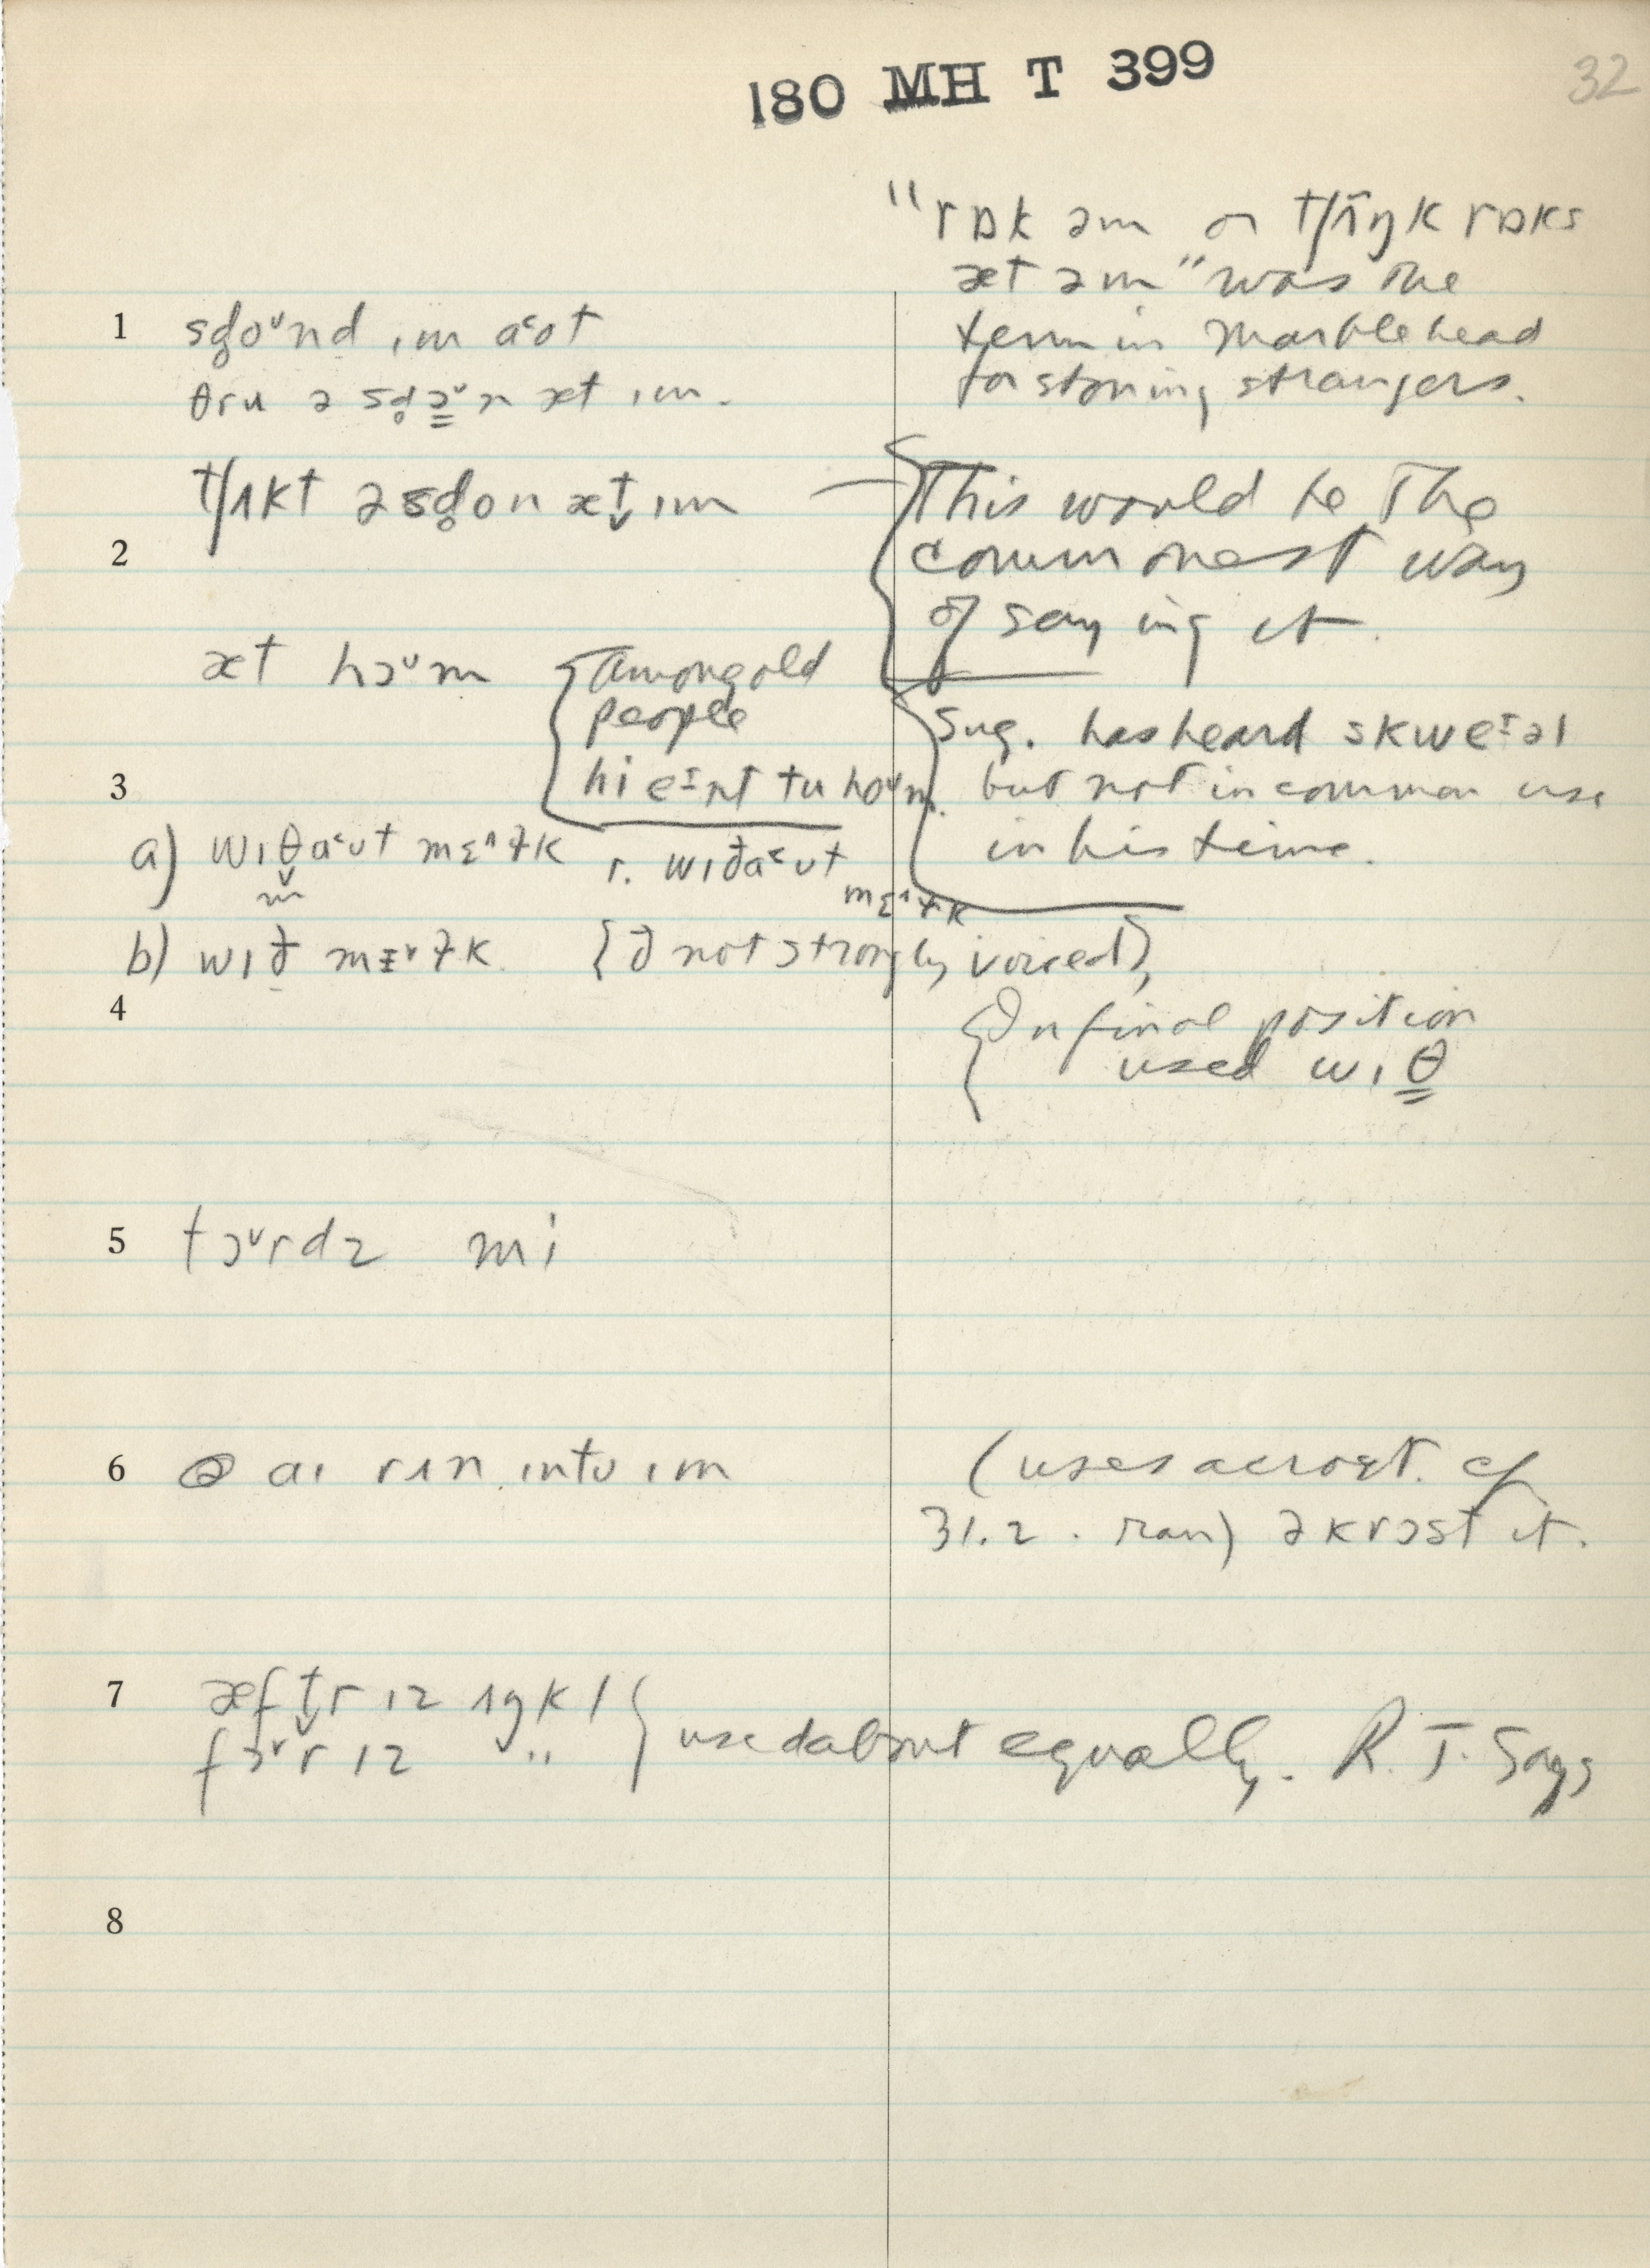 180 MH T 399
32
"rɒk əm or tʃʌŋk rɒks
æt əm" was the
term in Marblehead
for stoning strangers.
1 sd̥oᵘnd ɪm a˂ʊt
θru ə sd̥ɔᵛn æt ɪm.
tʃʌkt ə sd̥on æt̬ ɪm
This would be the
commonest way
of saying it.
2
æt hɔᵛm
{among old
people
hi eɪnt tu hoᵛm.
Sug. has heard skweɪəl
but not in common use
in his time.
3
a) wɪθ̬a˂ʊt mɛ^ɫk r. wɪða˂ʊt mɛ^ɫk
b) wɪð mɪᵛɫk {ð not strongly voiced}
4
{In final position
used wɪθ
5 tɔᵛrdz mi
6 aɪ rʌn ɪntʊ ɪm
(uses acrost. cf
31.2. ran) əkrɔst it.
7 æft̬r ɪz ʌŋkl
fɔᵛr ɪz "
} used about equally. R. I. Says
8